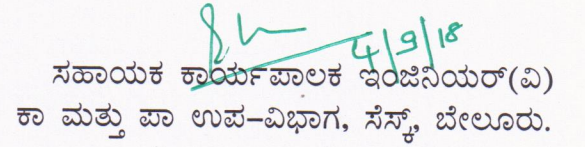 4/9/18
ಸಹಾಯಕ ಕಾರ್ಯಪಾಲಕ ಇಂಜಿನಿಯರ್(ವಿ)
ಕಾ ಮತ್ತು ಪಾ ಉಪ-ವಿಭಾಗ, ಸೆಸ್ಕ್, ಬೇಲೂರು.